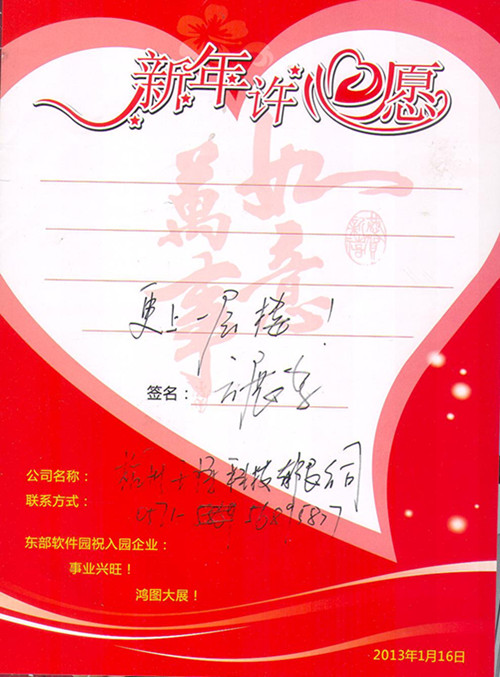 新年许心愿
万事如意
更上一层楼！
签名：
公司名称：杭州 科技有限公司
联系方式：0571- 56895877
东部软件园祝入园企业：
事业兴旺！
鸿图大展！
2013年1月16日